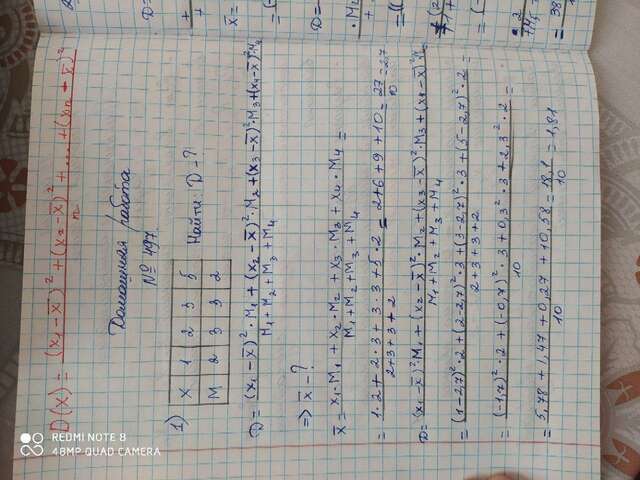 D(X) = (x₁ - x̄)² + (x₂ - x̄)² + ... + (xn + x̄)² / n
Домашняя работа
№ 497.
1) X 1 2 3 5 Найти: D - ?
M 2 3 3 2
D = (x₁ - x̄)² · M₁ + (x₂ - x̄)² · M₂ + (x₃ - x̄)² · M₃ + (x₄ - x̄)² · M₄ / M₁ + M₂ + M₃ + M₄
=> x̄ - ?
x̄ = x₁ · M₁ + x₂ · M₂ + x₃ · M₃ + x₄ · M₄ / M₁ + M₂ + M₃ + M₄ =
= 1 · 2 + 2 · 3 + 3 · 3 + 5 · 2 / 2 + 3 + 3 + 2 = 2 + 6 + 9 + 10 = 27 / 10 = 2,7
D = (x₁ - x̄)² · M₁ + (x₂ - x̄)² · M₂ + (x₃ - x̄)² · M₃ + (x₄ - x̄)² · M₄ / M₁ + M₂ + M₃ + M₄
= (1 - 2,7)² · 2 + (2 - 2,7)² · 3 + (3 - 2,7)² · 3 + (5 - 2,7)² · 2 / 2 + 3 + 3 + 2 =
= (-1,7)² · 2 + (-0,7)² · 3 + 0,3² · 3 + 2,3² · 2 / 10 =
= 5,78 + 1,47 + 0,27 + 10,58 / 10 = 18,1 / 10 = 1,81
REDMI NOTE 8
48MP QUAD CAMERA